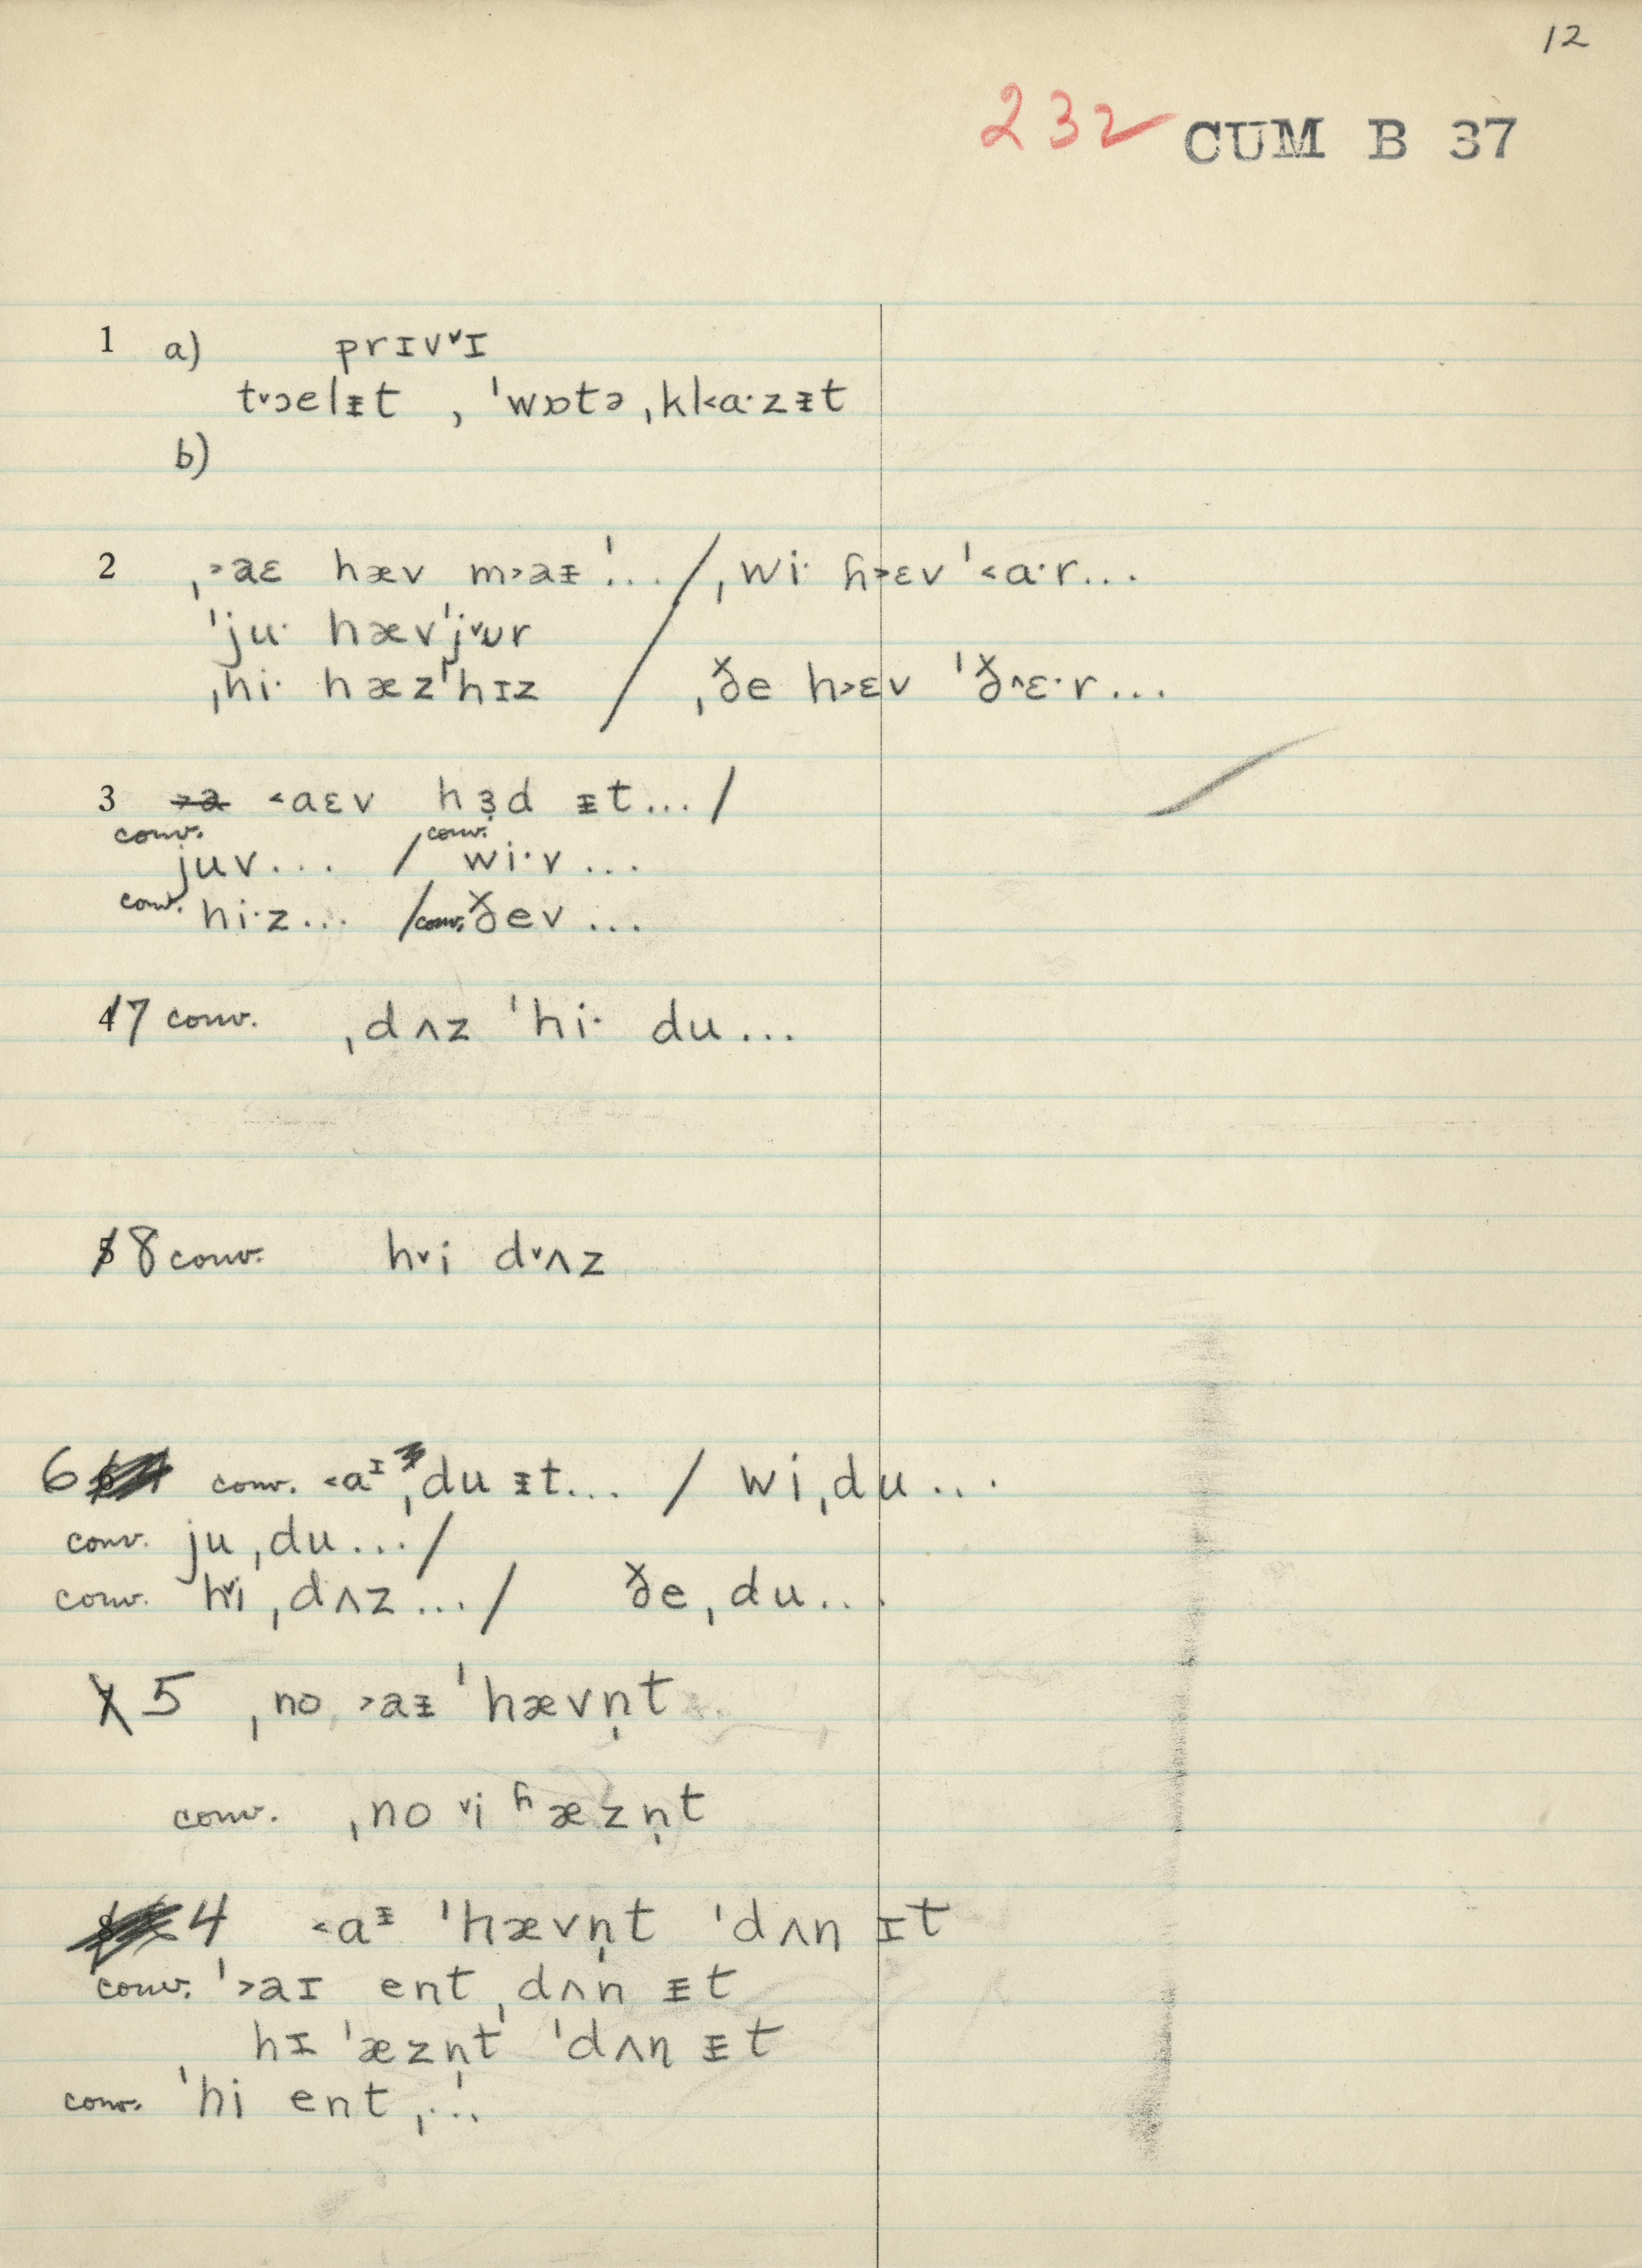 12
232 CUM B 37
1 a) prɪv˅ɪ
t˅ɔelᵻt , ˈwɒtə ˌkl˂a·zᵻt
b)
2 ˌ˃aɛ hæv m˃aᵻˈ... / ˌwi· ɦ˃ɛv ˈ˂a·r...
ˈju· hævˈj˅ʊr
ˌhi· hæzˈhɪz / ˌðe h˃ɛv ˈð˄ɛ·r...
3 ˂aɛv hɜ̣d ᵻt... /
conv. juv... / conv. wi·v...
conv. hi·z... / conv. ðev...
7 conv. ˌdʌz ˈhi· du...
8 conv. h˅i d˅ʌz
6 conv. ˂aᶦ ˌdu ᵻt... / wiˌdu...
conv. juˌdu... /
conv. h˅iˌdʌz... / ðeˌdu...
5 ˌno, ˃aᵻ ˈhævn̩t
conv. ˌno ˅i ʱæzn̩t
4 ˂aᵻ ˈhævn̩t ˈdʌn ɪt
conv. ˈ˃aɪ entˌdʌn ᵻt
hɪ ˈæzn̩t ˈdʌn ᵻt
conv. ˈhi entˌ...